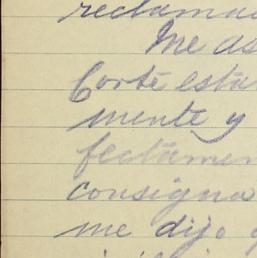 reclamac
Me as
Corte esta
mente y
fectamen
consigna
me dijo q